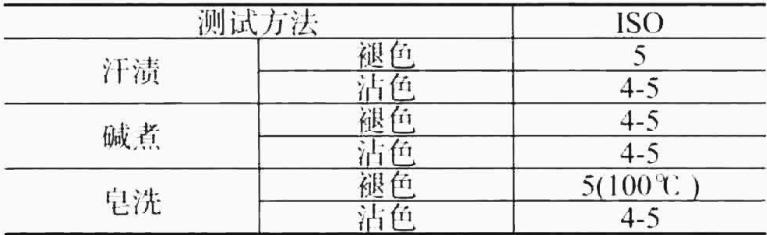 测试方法 ISO
汗渍 褪色 5
沾色 4-5
碱煮 褪色 4-5
沾色 4-5
皂洗 褪色 5(100℃)
沾色 4-5